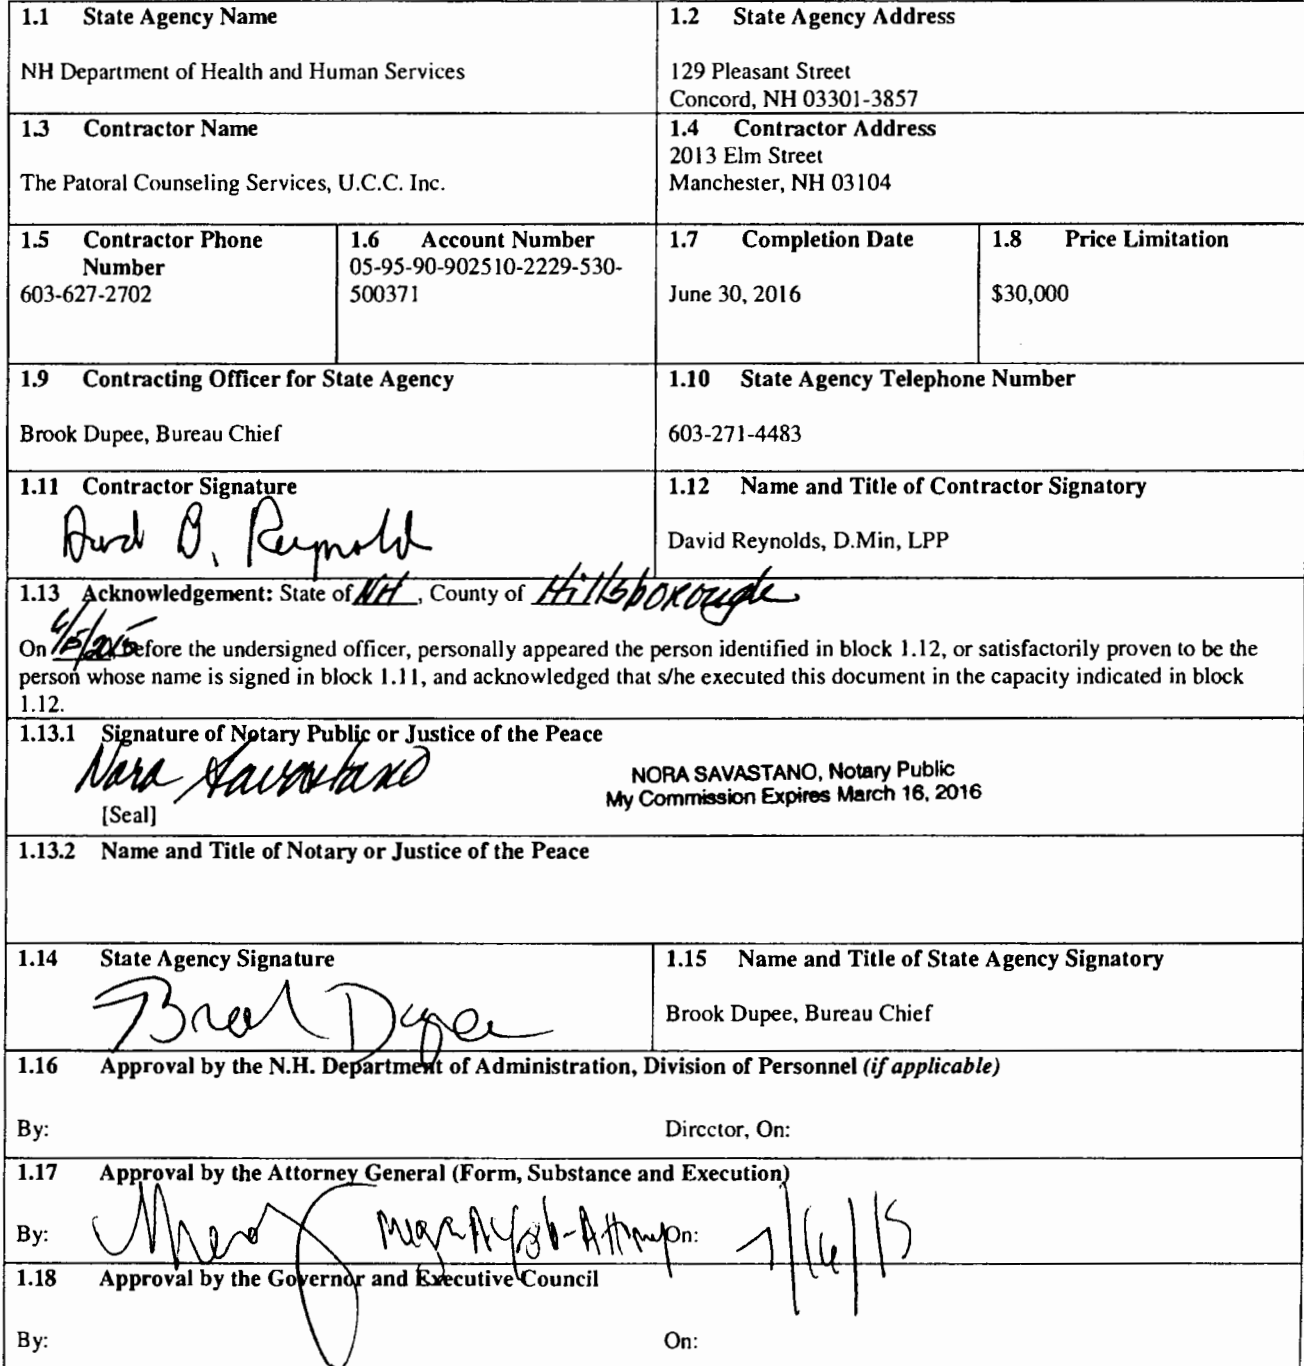 1.1 State Agency Name
NH Department of Health and Human Services
1.2 State Agency Address
129 Pleasant Street
Concord, NH 03301-3857
1.3 Contractor Name
The Patoral Counseling Services, U.C.C. Inc.
1.4 Contractor Address
2013 Elm Street
Manchester, NH 03104
1.5 Contractor Phone
Number
603-627-2702
1.6 Account Number
05-95-90-902510-2229-530-
500371
1.7 Completion Date
June 30, 2016
1.8 Price Limitation
$30,000
1.9 Contracting Officer for State Agency
Brook Dupee, Bureau Chief
1.10 State Agency Telephone Number
603-271-4483
1.11 Contractor Signature
David B. Reynolds
1.12 Name and Title of Contractor Signatory
David Reynolds, D.Min, LPP
1.13 Acknowledgement: State of NH, County of Hillsborough
On 6/5/2015 before the undersigned officer, personally appeared the person identified in block 1.12, or satisfactorily proven to be the
person whose name is signed in block 1.11, and acknowledged that s/he executed this document in the capacity indicated in block
1.12.
1.13.1 Signature of Notary Public or Justice of the Peace
Nora Savastano
NORA SAVASTANO, Notary Public
My Commission Expires March 16, 2016
[Seal]
1.13.2 Name and Title of Notary or Justice of the Peace
1.14 State Agency Signature
Brook Dupee
1.15 Name and Title of State Agency Signatory
Brook Dupee, Bureau Chief
1.16 Approval by the N.H. Department of Administration, Division of Personnel (if applicable)
By: Director, On:
1.17 Approval by the Attorney General (Form, Substance and Execution)
By: On:
1.18 Approval by the Governor and Executive Council
By: On: